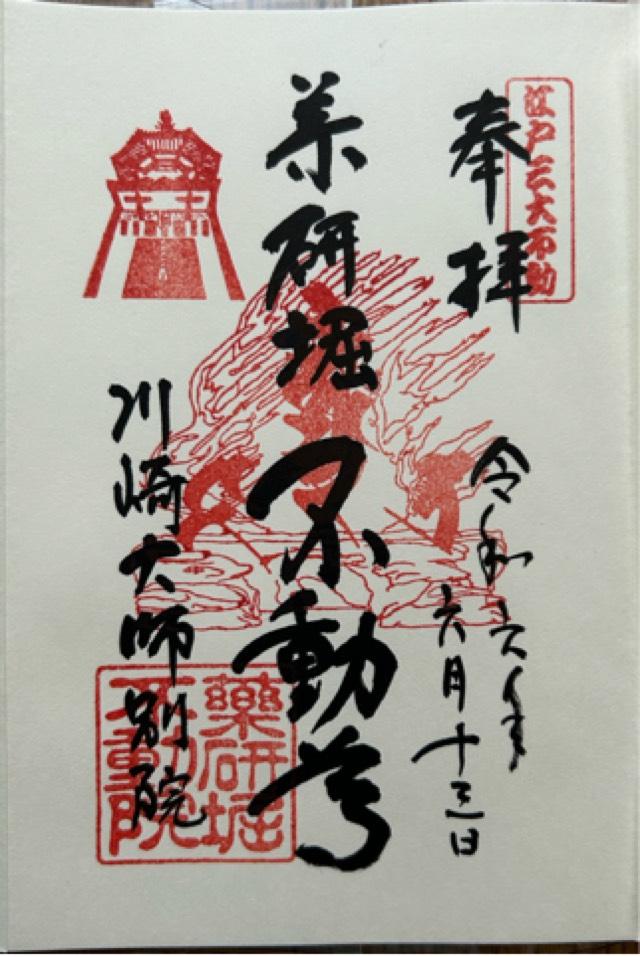 江戸三大不動
奉拝
令和六年
六月十三日
薬研堀不動尊
川崎大師別院
薬研堀
不動院